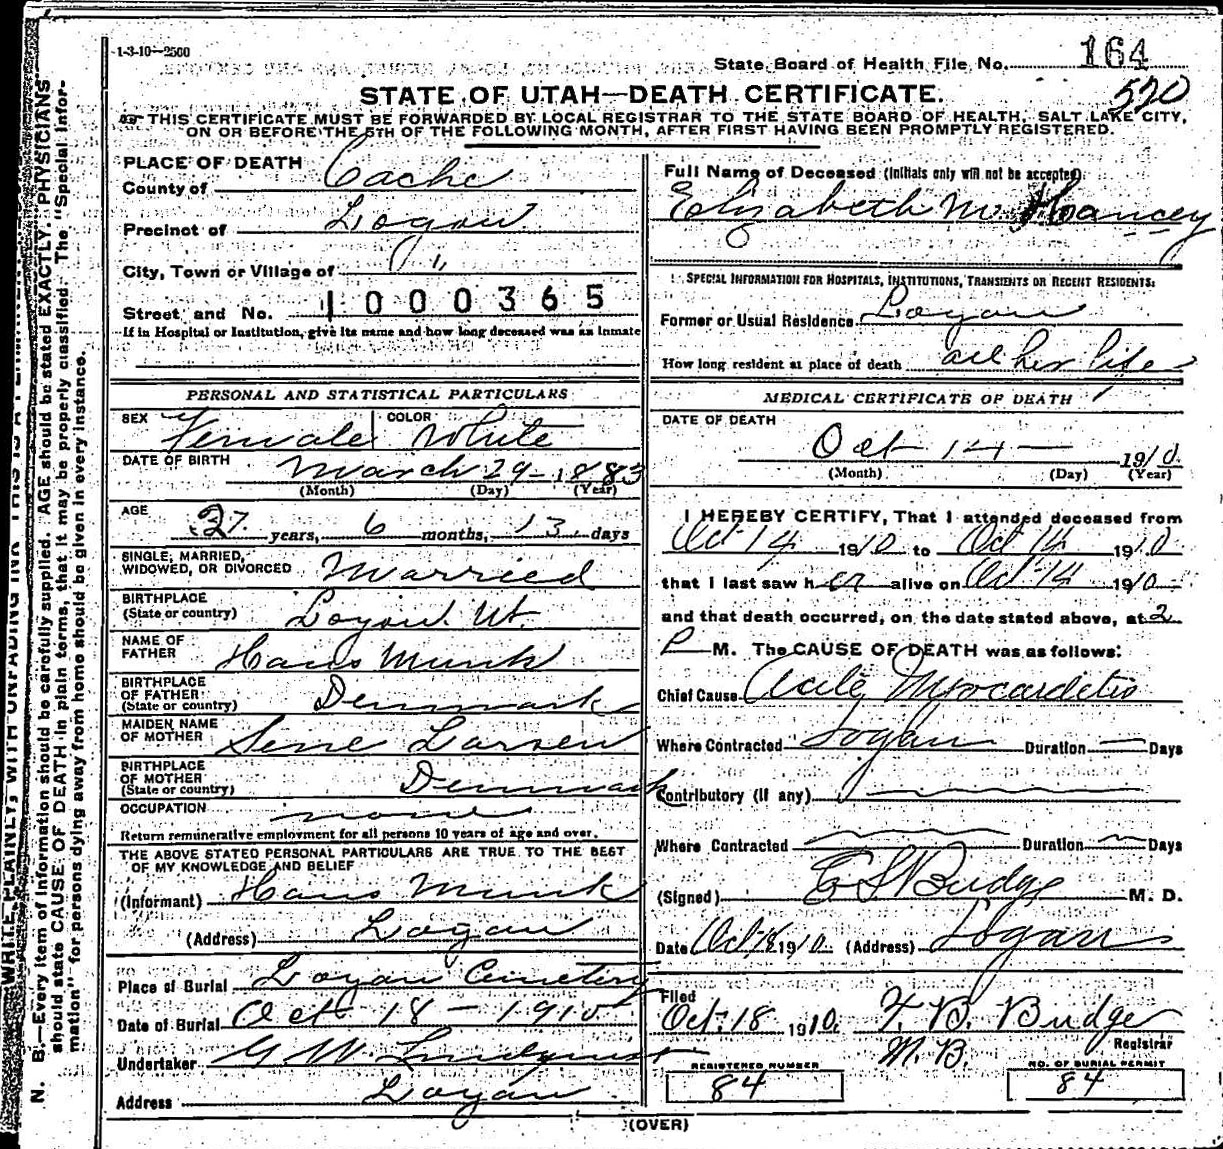 1-3-10—2500
State Board of Health File No. 164
520
STATE OF UTAH—DEATH CERTIFICATE.
THIS CERTIFICATE MUST BE FORWARDED BY LOCAL REGISTRAR TO THE STATE BOARD OF HEALTH, SALT LAKE CITY,
ON OR BEFORE THE 5TH OF THE FOLLOWING MONTH, AFTER FIRST HAVING BEEN PROMPTLY REGISTERED.
PLACE OF DEATH
County of Cache
Precinct of Logan
City, Town or Village of "
Street and No. 1000365
If in Hospital or Institution, give its name and how long deceased was an inmate
PERSONAL AND STATISTICAL PARTICULARS
SEX Female COLOR White
DATE OF BIRTH March 29-1883
(Month) (Day) (Year)
AGE 27 years, 6 months, 13 days
SINGLE, MARRIED,
WIDOWED, OR DIVORCED Married
BIRTHPLACE
(State or country) Logan Ut.
NAME OF
FATHER Hans Munk
BIRTHPLACE
OF FATHER
(State or country) Denmark
MAIDEN NAME
OF MOTHER Sine Larsen
BIRTHPLACE
OF MOTHER
(State or country) Denmark
OCCUPATION none
Return remunerative employment for all persons 10 years of age and over.
THE ABOVE STATED PERSONAL PARTICULARS ARE TRUE TO THE BEST
OF MY KNOWLEDGE AND BELIEF
(Informant) Hans Munk
(Address) Logan
Place of Burial Logan Cemetery
Date of Burial Oct 18 - 1910
Undertaker G W. Lindquist
Address Logan
Full Name of Deceased (Initials only will not be accepted)
Elizabeth M. Hancey
SPECIAL INFORMATION FOR HOSPITALS, INSTITUTIONS, TRANSIENTS OR RECENT RESIDENTS:
Former or Usual Residence Logan
How long resident at place of death all her life
MEDICAL CERTIFICATE OF DEATH
DATE OF DEATH
Oct 14 — 1910
(Month) (Day) (Year)
I HEREBY CERTIFY, That I attended deceased from
Oct 14 1910 to Oct 14 1910
that I last saw her alive on Oct 14 1910
and that death occurred, on the date stated above, at 2
P M. The CAUSE OF DEATH was as follows:
Chief Cause Acute Myocardetis
Where Contracted Logan Duration — Days
Contributory (if any)
Where Contracted Duration Days
(Signed) E S Budge M. D.
Date Oct 18 1910 (Address) Logan
Filed
Oct 18 1910. F. B. Budge
Registrar
M. B.
REGISTERED NUMBER
84
NO. OF BURIAL PERMIT
84
(OVER)
N. B.—Every item of information should be carefully supplied. AGE should be stated EXACTLY. PHYSICIANS
should state CAUSE OF DEATH in plain terms, that it may be properly classified. The "Special Infor-
mation" for persons dying away from home should be given in every instance.